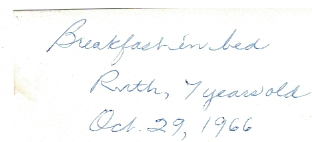 Breakfast in bed
Ruth, 7 years old
Oct. 29, 1966